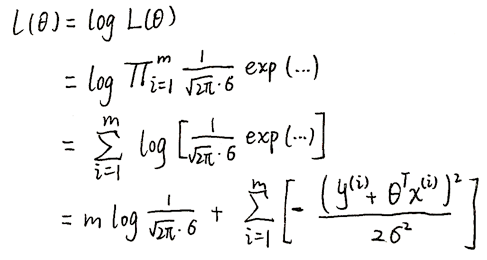 l(θ) = log L(θ)
= log ∏_{i=1}^{m} \frac{1}{\sqrt{2π}·σ} exp(...)
= \sum_{i=1}^{m} log [\frac{1}{\sqrt{2π}·σ} exp(...)]
= m log \frac{1}{\sqrt{2π}·σ} + \sum_{i=1}^{m} [-\frac{(y^{(i)} + θ^T x^{(i)})^2}{2σ^2}]